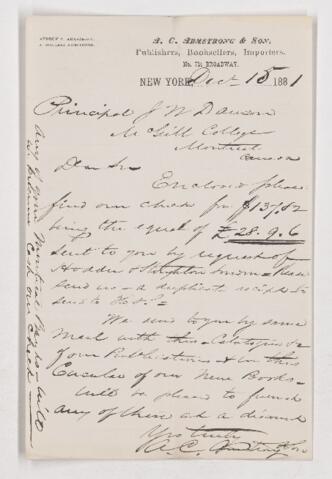 A. C. ARMSTRONG & SON,
Publishers, Booksellers, Importers.
No. 714 BROADWAY.
NEW YORK, Dec 15 1881
Principal J W Dawson
McGill College
Montreal
Canada
Dear Sir
Enclosed please
find our check for $137.82
being the equal of £28.9.6
sent to you by request of
Hodder & Stoughton London - Please
send us - a duplicate receipt to
send to H & S -
We send to you by same
mail with this - Catalogues of
our Publications & also this
Circular of our New Books -
will be pleased to furnish
any of them at a discount
Yrs truly
A. C. Armstrong & Son
any of your Montreal